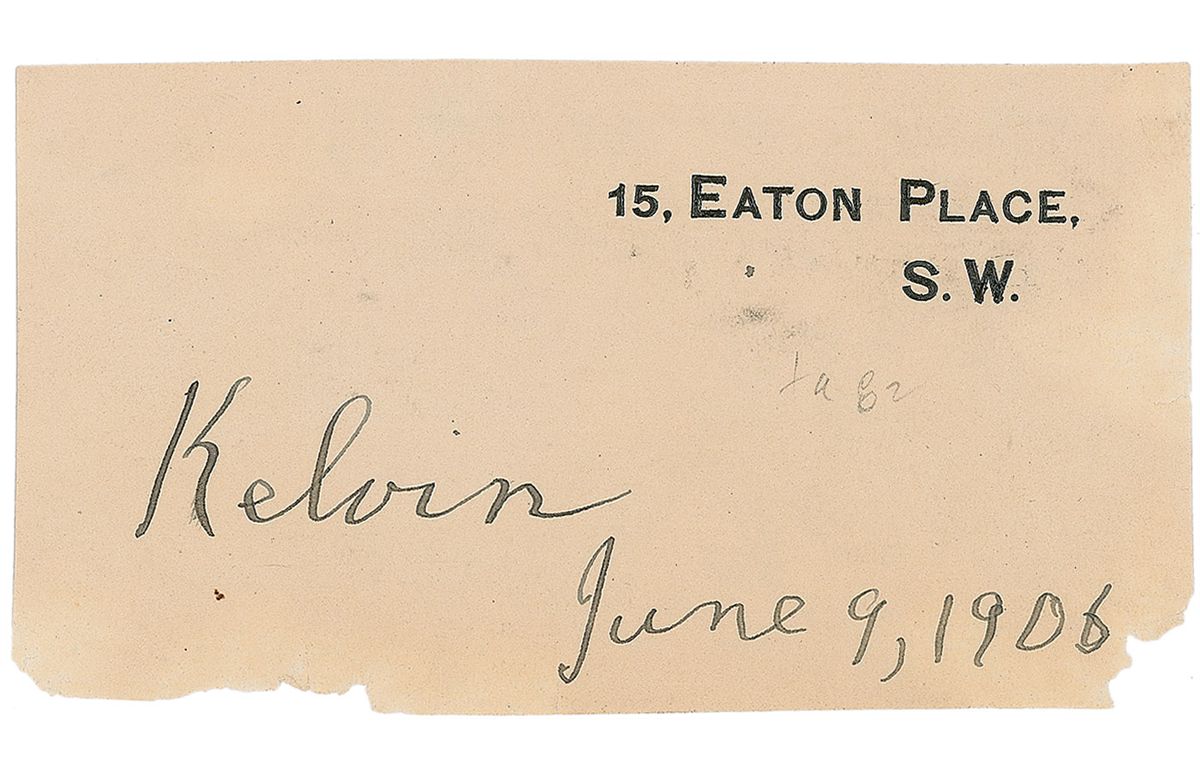 15, EATON PLACE,
S. W.
Kelvin
June 9, 1906